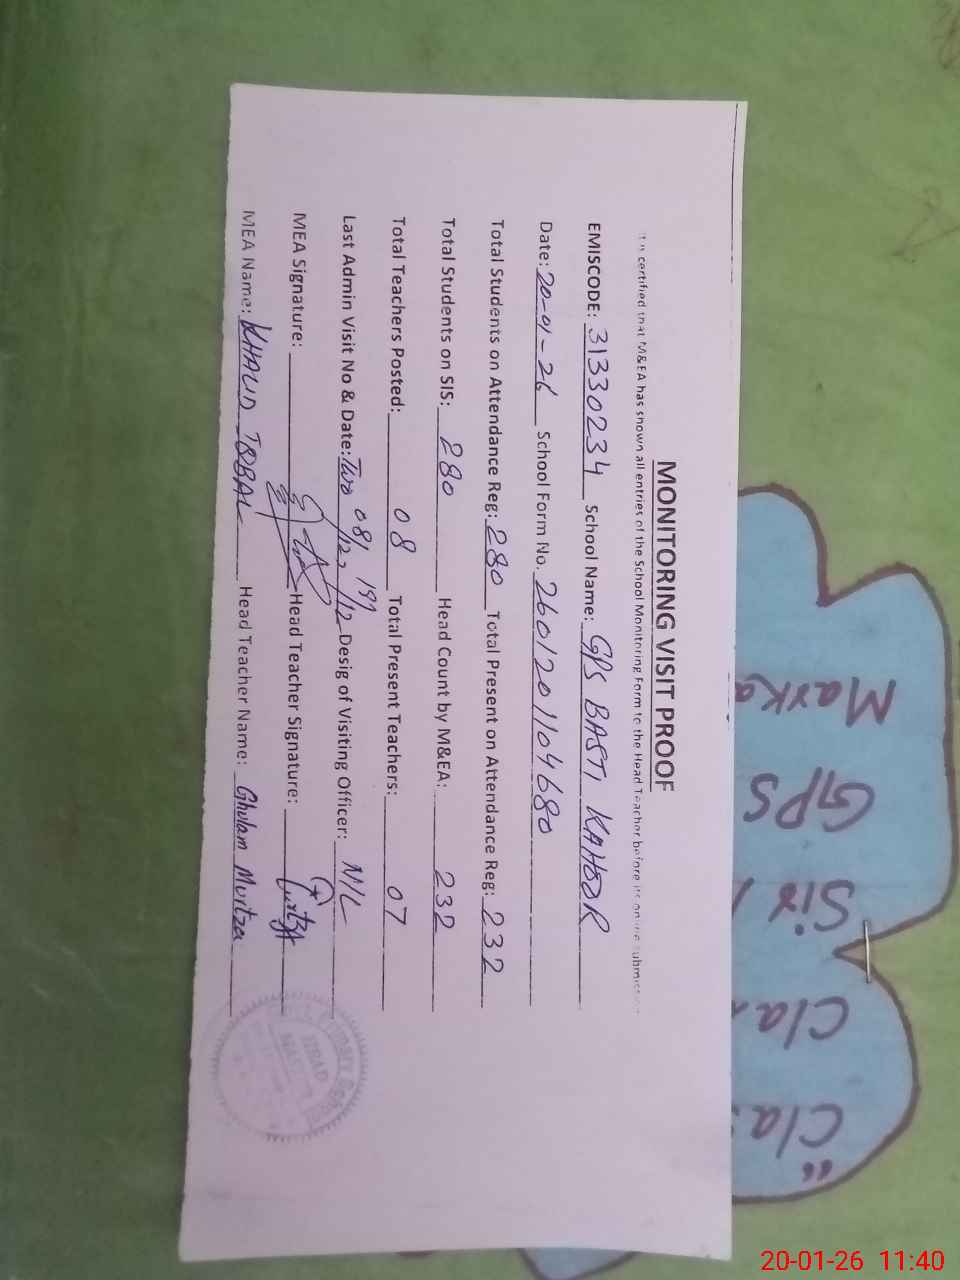 MONITORING VISIT PROOF
It is certified that M&EA has shown all entries of the School Monitoring Form to the Head Teacher before its online submission
EMISCODE: 31330234 School Name: GPS BASTI KAHOOR
Date: 20-01-26 School Form No. 2601201104680
Total Students on Attendance Reg: 280 Total Present on Attendance Reg: 232
Total Students on SIS: 280 Head Count by M&EA: 232
Total Teachers Posted: 08 Total Present Teachers: 07
Last Admin Visit No & Date: Two 08/12, 19/12 Desig of Visiting Officer: NIL
MEA Signature: Head Teacher Signature:
MEA Name: KHALID IQBAL Head Teacher Name: Ghulam Murtza
Marka
GPS
Six
Cla
Cla
20-01-26 11:40